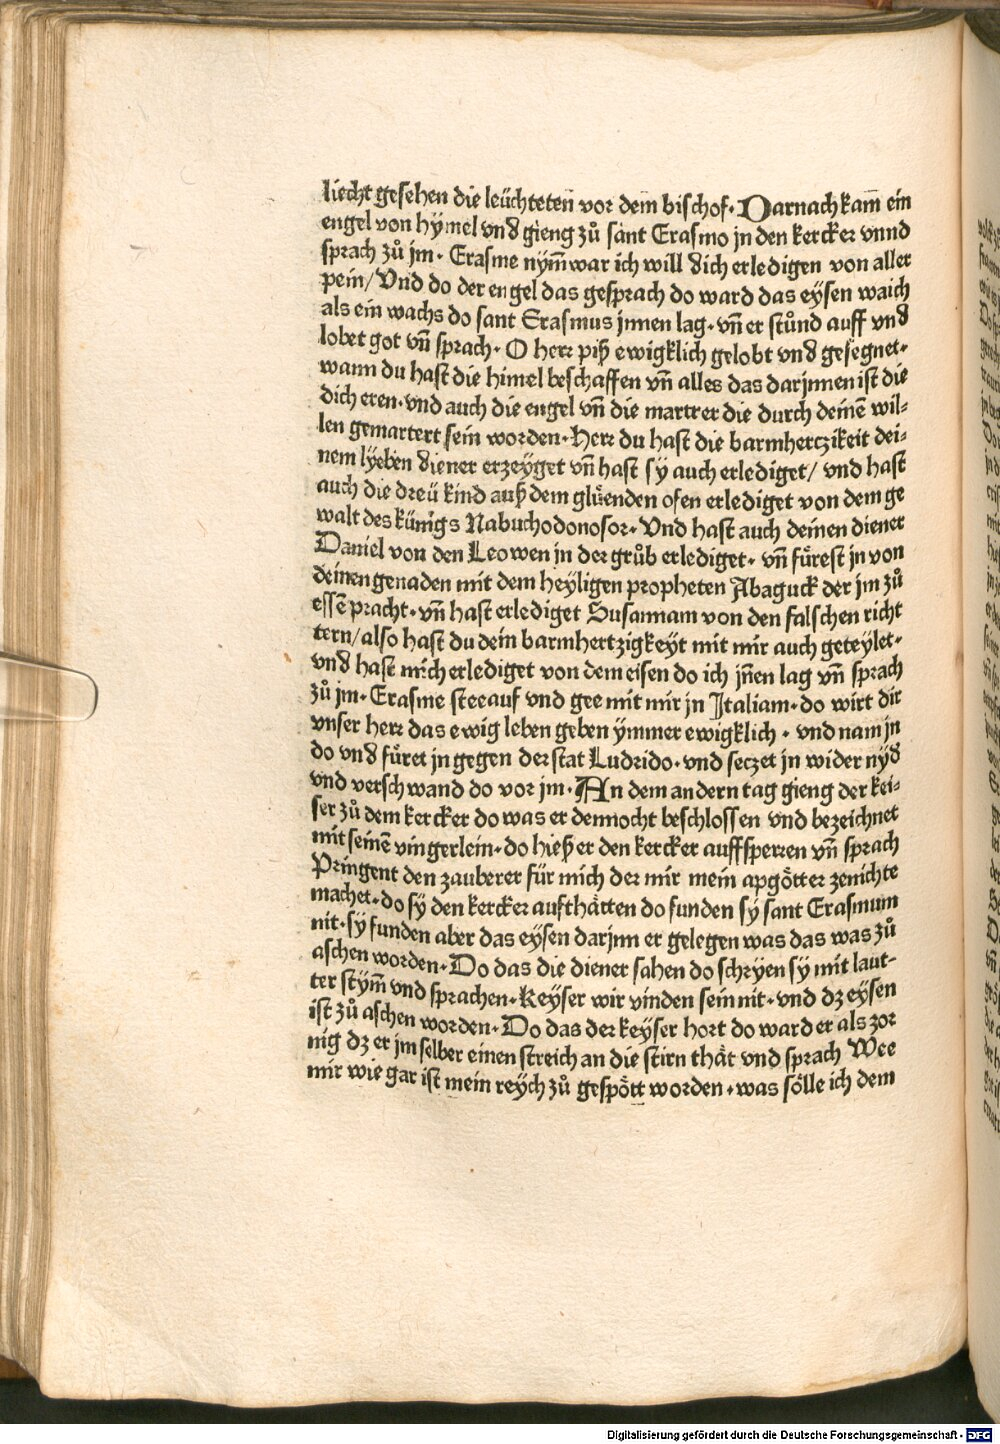 liecht gesehen die leüchteten vor dem bischof. Darnach kam̄ ein
engel von hymel vnd gieng zů sant Erasmo jn den kercker vnnd
sprach zů jm. Erasme nym̄ war ich will dich erledigen von aller
pein/ Vnd do der engel das gesprach do ward das eysen waich
als ein wachs do sant Erasmus jnnen lag. vn̄ er stůnd auff vnd
lobet got vn̄ sprach. O herr piß ewigklich gelobt vnd gesegnet.
wann du hast die himel beschaffen vn̄ alles das darjnnen ist die
dich eren. vnd auch die engel vn̄ die martrer die durch deinē wil⸗
len gemartert sein worden. Herr du hast die barmhertzikeit dei⸗
nem lÿeben diener erzeÿget vn̄ hast sy auch erlediget/ vnd hast
auch die dreü kind auß dem glüenden ofen erlediget von dem ge
walt des künigs Nabuchodonosor. Vnd hast auch deinen diener
Daniel von den Leowen jn der grůb erlediget. vn̄ fürest jn von
deinen genaden mit dem heÿligen propheten Abaguck der jm zů
essē pracht. vn̄ hast erlediget Susannam von den falschen richt
tern/ also hast du dein barmhertzigkeyt mit mir auch geteÿlet.
vnd hast mich erlediget von dem eisen do ich jn̄en lag vn̄ sprach
zů jm. Erasme stee auf vnd gee mit mir jn Italiam. do wirt dir
vnser herr das ewig leben geben ÿmmer ewigklich. vnd nam jn
do vnd füret jn gegen der stat Ludrido. vnd seczet jn wider nÿd
vnd verschwand do vor jm. An dem andern tag gieng der kei⸗
ser zů dem kercker do was er dennocht beschlossen vnd bezeichnet
mit seinē vingerlein. do hieß er den kercker auffsperren vn̄ sprach
Pringent den zauberer für mich der mir mein apgötter zenichte
machet. do sÿ den kercker aufthätten do funden sÿ sant Erasmum
nit. sÿ funden aber das eÿsen darjnn er gelegen was das was zů
aschen worden. Do das die diener sahen do schrÿen sÿ mit laut⸗
ter stÿm̄ vnd sprachen. Keÿser wir vinden sein nit. vnd dz eÿsen
ist zů aschen worden. Do das der keÿser hort do ward er als zor
nig dz er jm selber einen streich an die stirn thät vnd sprach Wee
mir wie gar ist mein reÿch zů gespött worden. was sölle ich dem
Digitalisierung gefördert durch die Deutsche Forschungsgemeinschaft - DFG